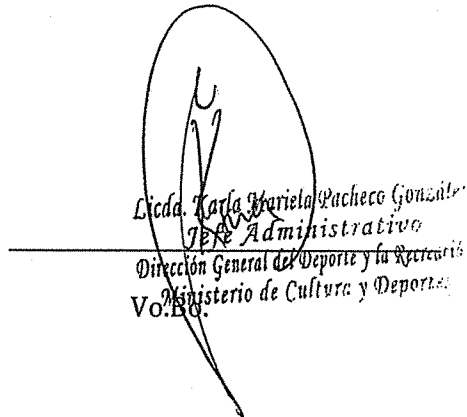 Licda. Karla Mariela Pacheco González
Jefe Administrativo
Dirección General del Deporte y la Recreación
Ministerio de Cultura y Deportes
Vo.Bo.